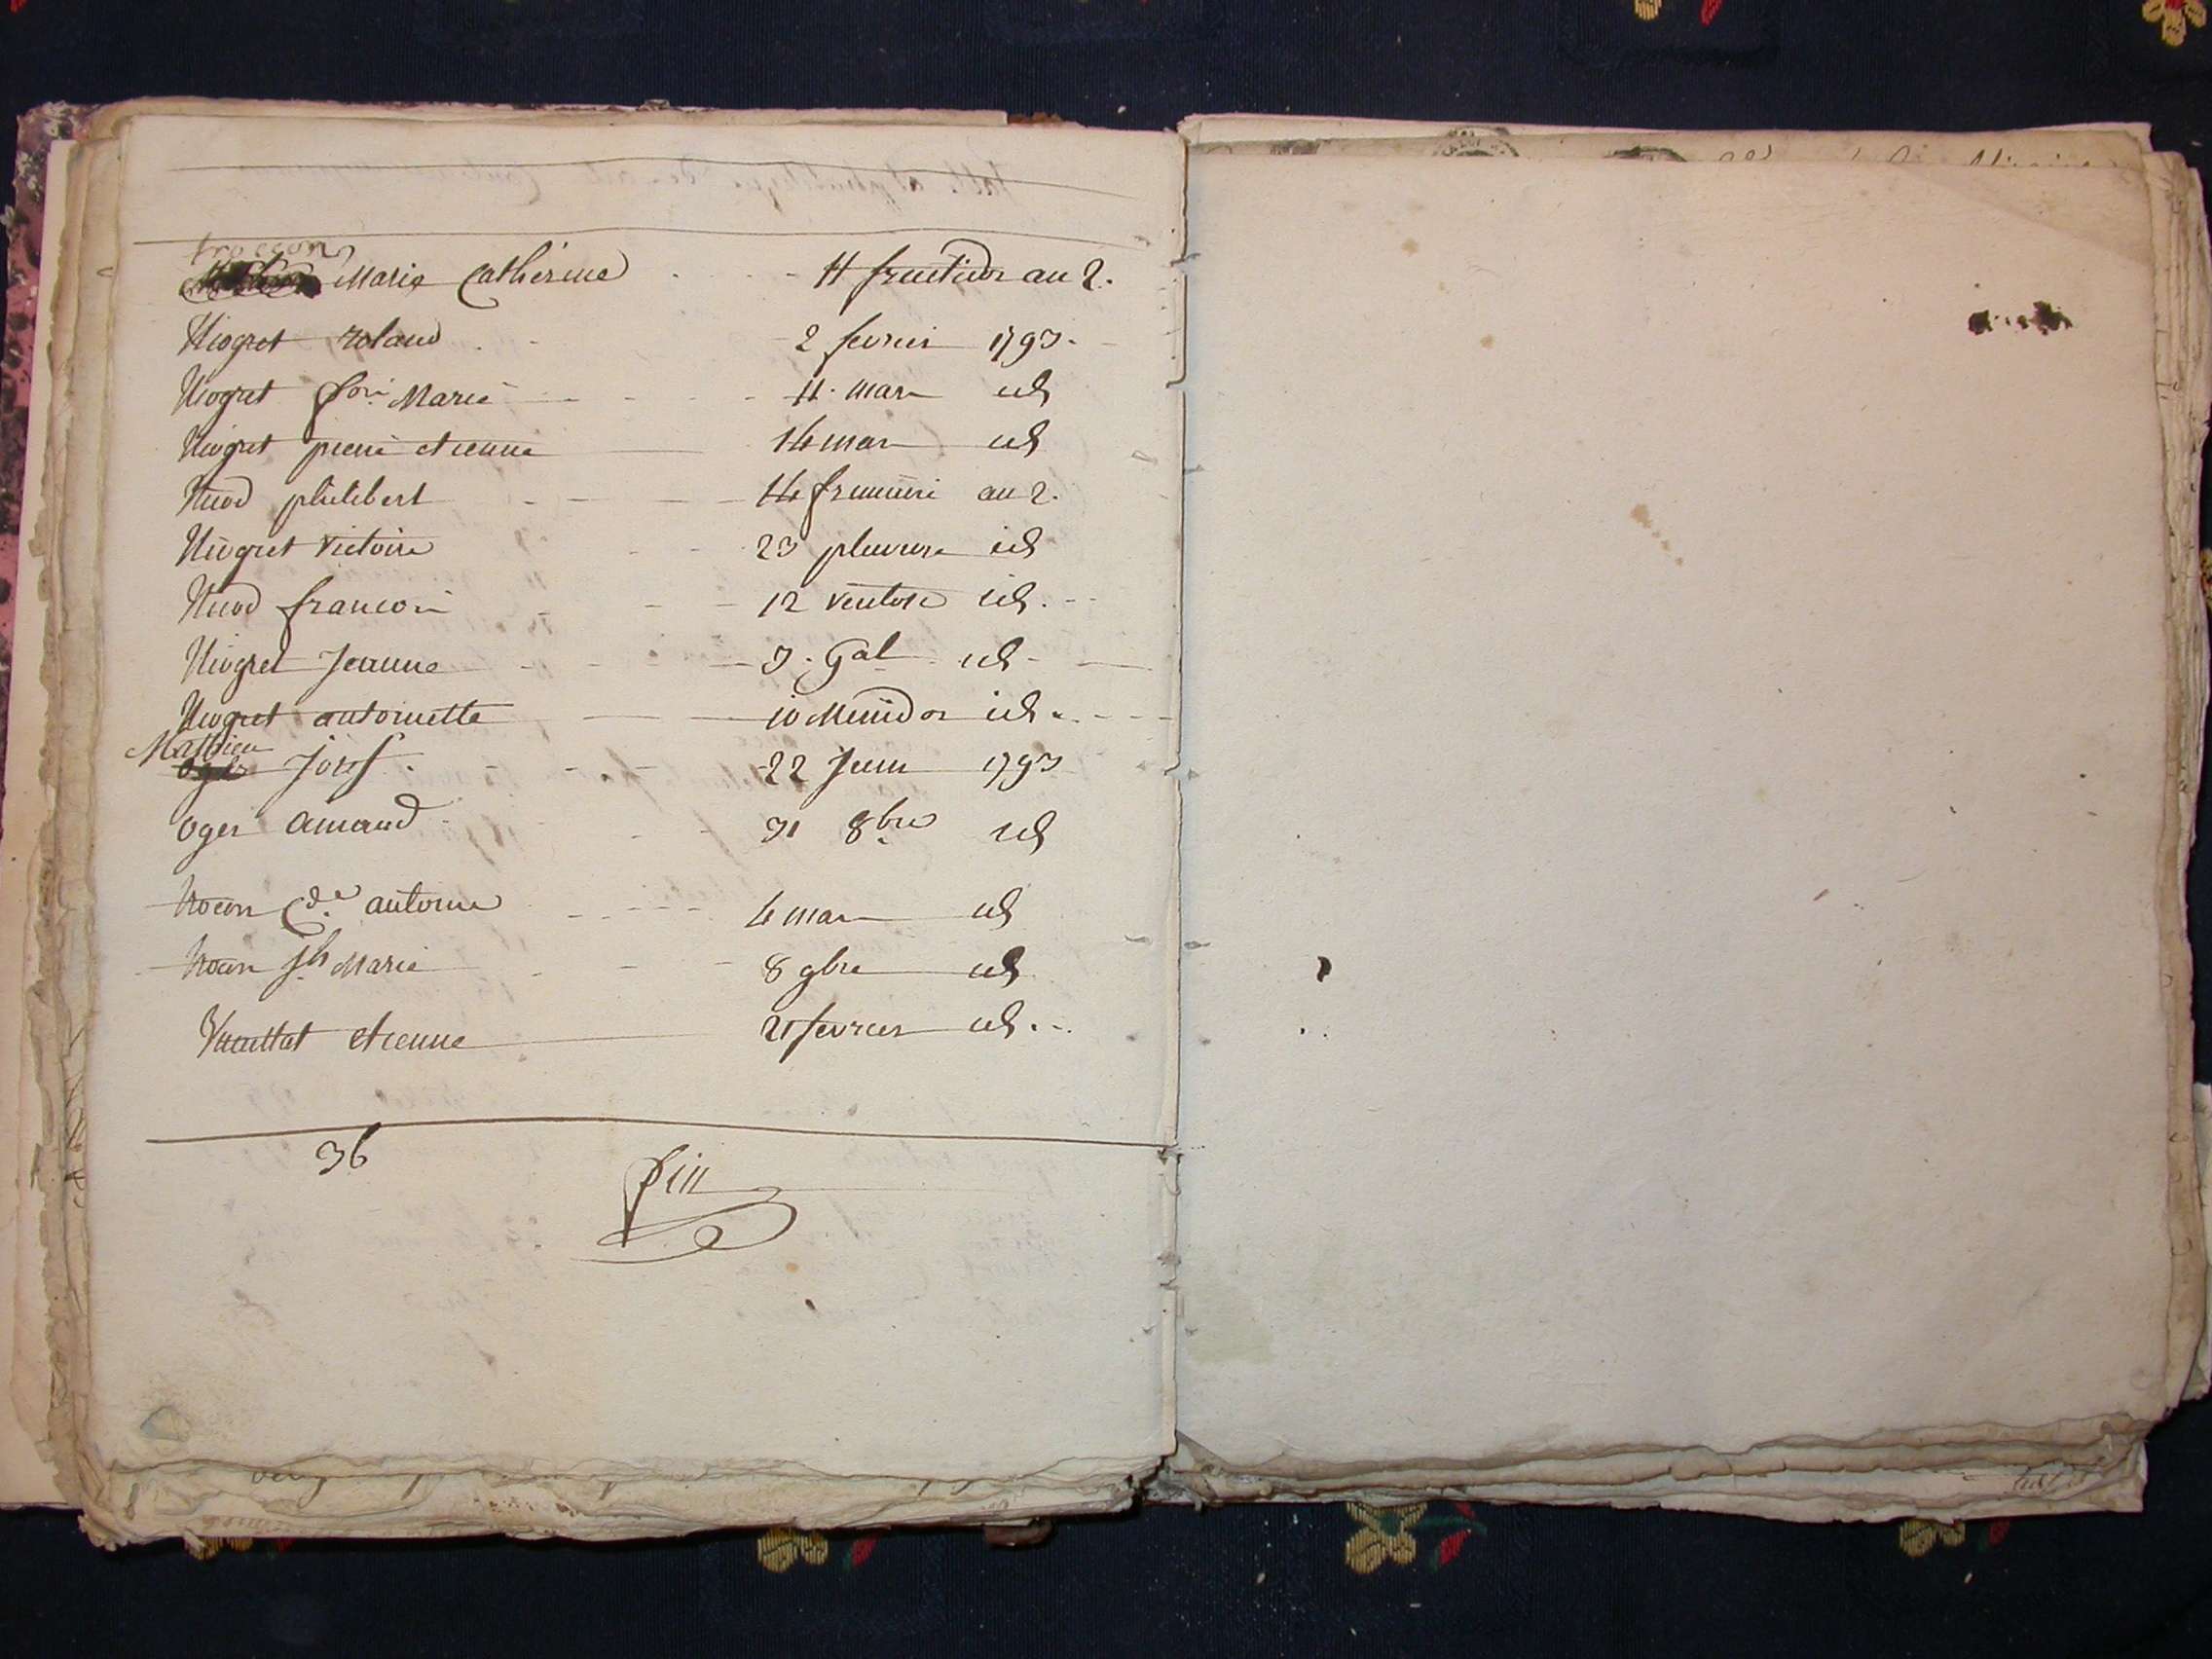 trocçon
Marie Catherine 11 fructidor an 2.
Niogret roland 2 fevrier 1793.
Niogret fçoi Marie 11 mars id
Niogret pierre etienne 14 mars id
Niod philibert 14 frimaire an 2.
Niogret victoire 23 pluviose id
Niod francois 12 ventose id.
Niogret Jeanne 3. Gal id
Niogret antoinette 10 Messidor id
Mathieu
Josef 22 Juin 1793
Oger amand 31 8bre id
Cde antoine 4 mars id
Jh Marie 8 9bre id
etienne 21 fevrier id.
36
fin